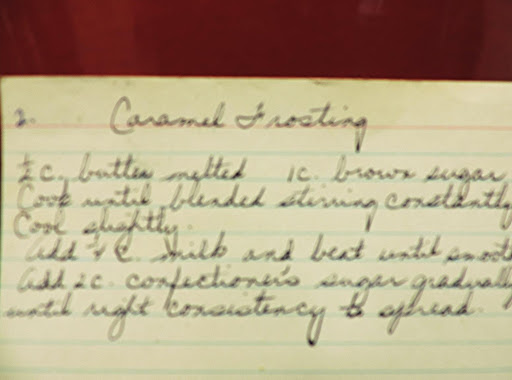 2. Caramel Frosting
½ c. butter melted 1c. brown sugar
Cook until blended stirring constantly
Cool slightly.
Add ¼ c. milk and beat until smooth
Add 2c. confectioner's sugar gradually
until right consistency to spread.